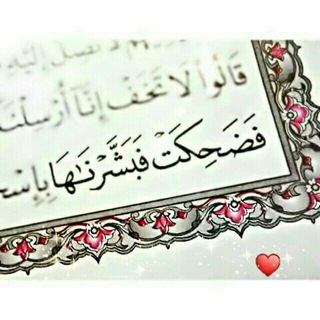 لَا تَصِلُ إِلَيْهِ
قَالُوا۟ لَا تَخَفْ إِنَّآ أُرْسِلْنَا
فَضَحِكَتْ فَبَشَّرْنَـٰهَا بِإِسْحَـ